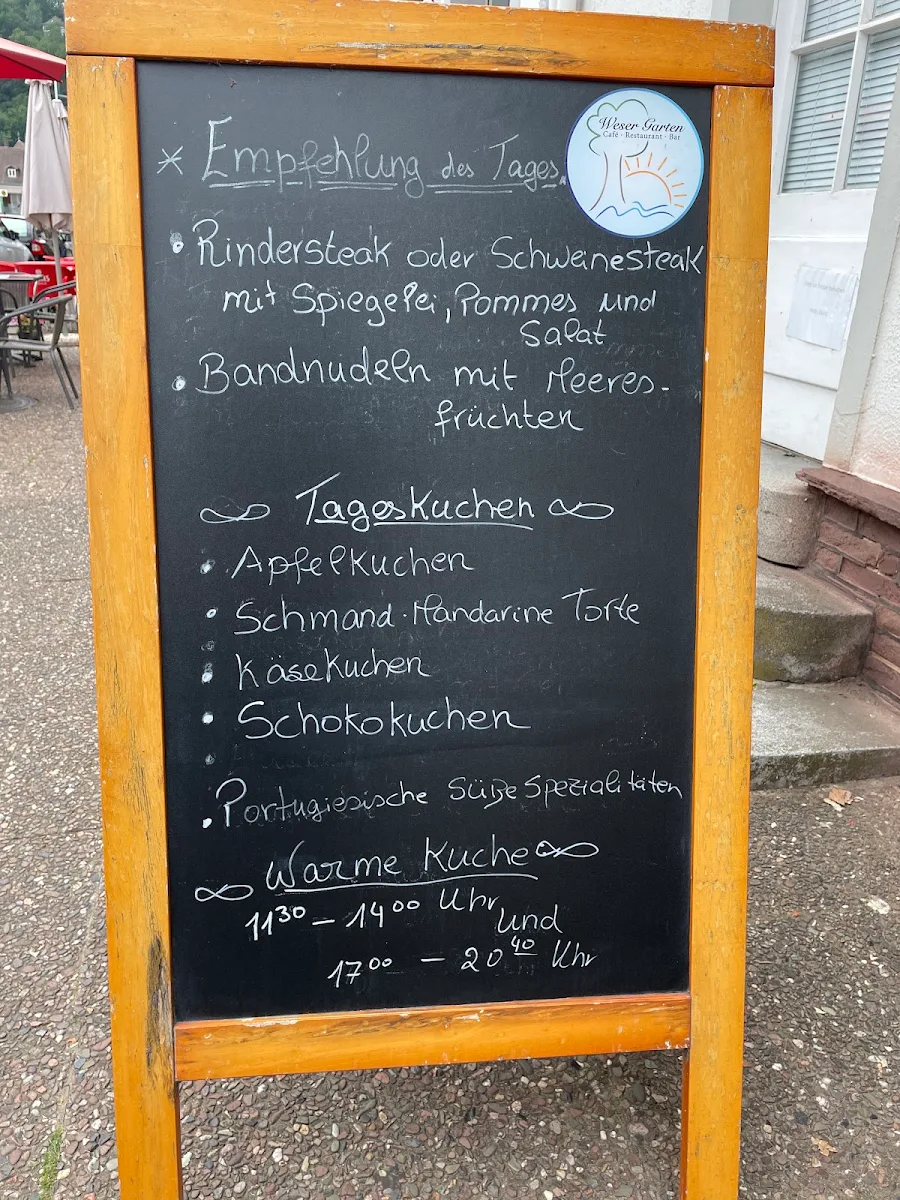 Weser Garten
Café · Restaurant · Bar
* Empfehlung des Tages
• Rindersteak oder Schweinesteak
mit Spiegelei, Pommes und
Salat
• Bandnudeln mit Meeres-
früchten
Tageskuchen
• Apfelkuchen
• Schmand-Mandarine Torte
• Käsekuchen
• Schokokuchen
• Portugiesische Süße Spezialitäten
Warme Küche
11³⁰ – 14⁰⁰ Uhr und
17⁰⁰ – 20⁴⁰ Uhr